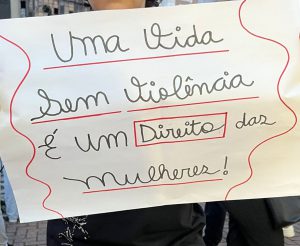 Uma Vida
Sem Violência
É um Direito das
mulheres!